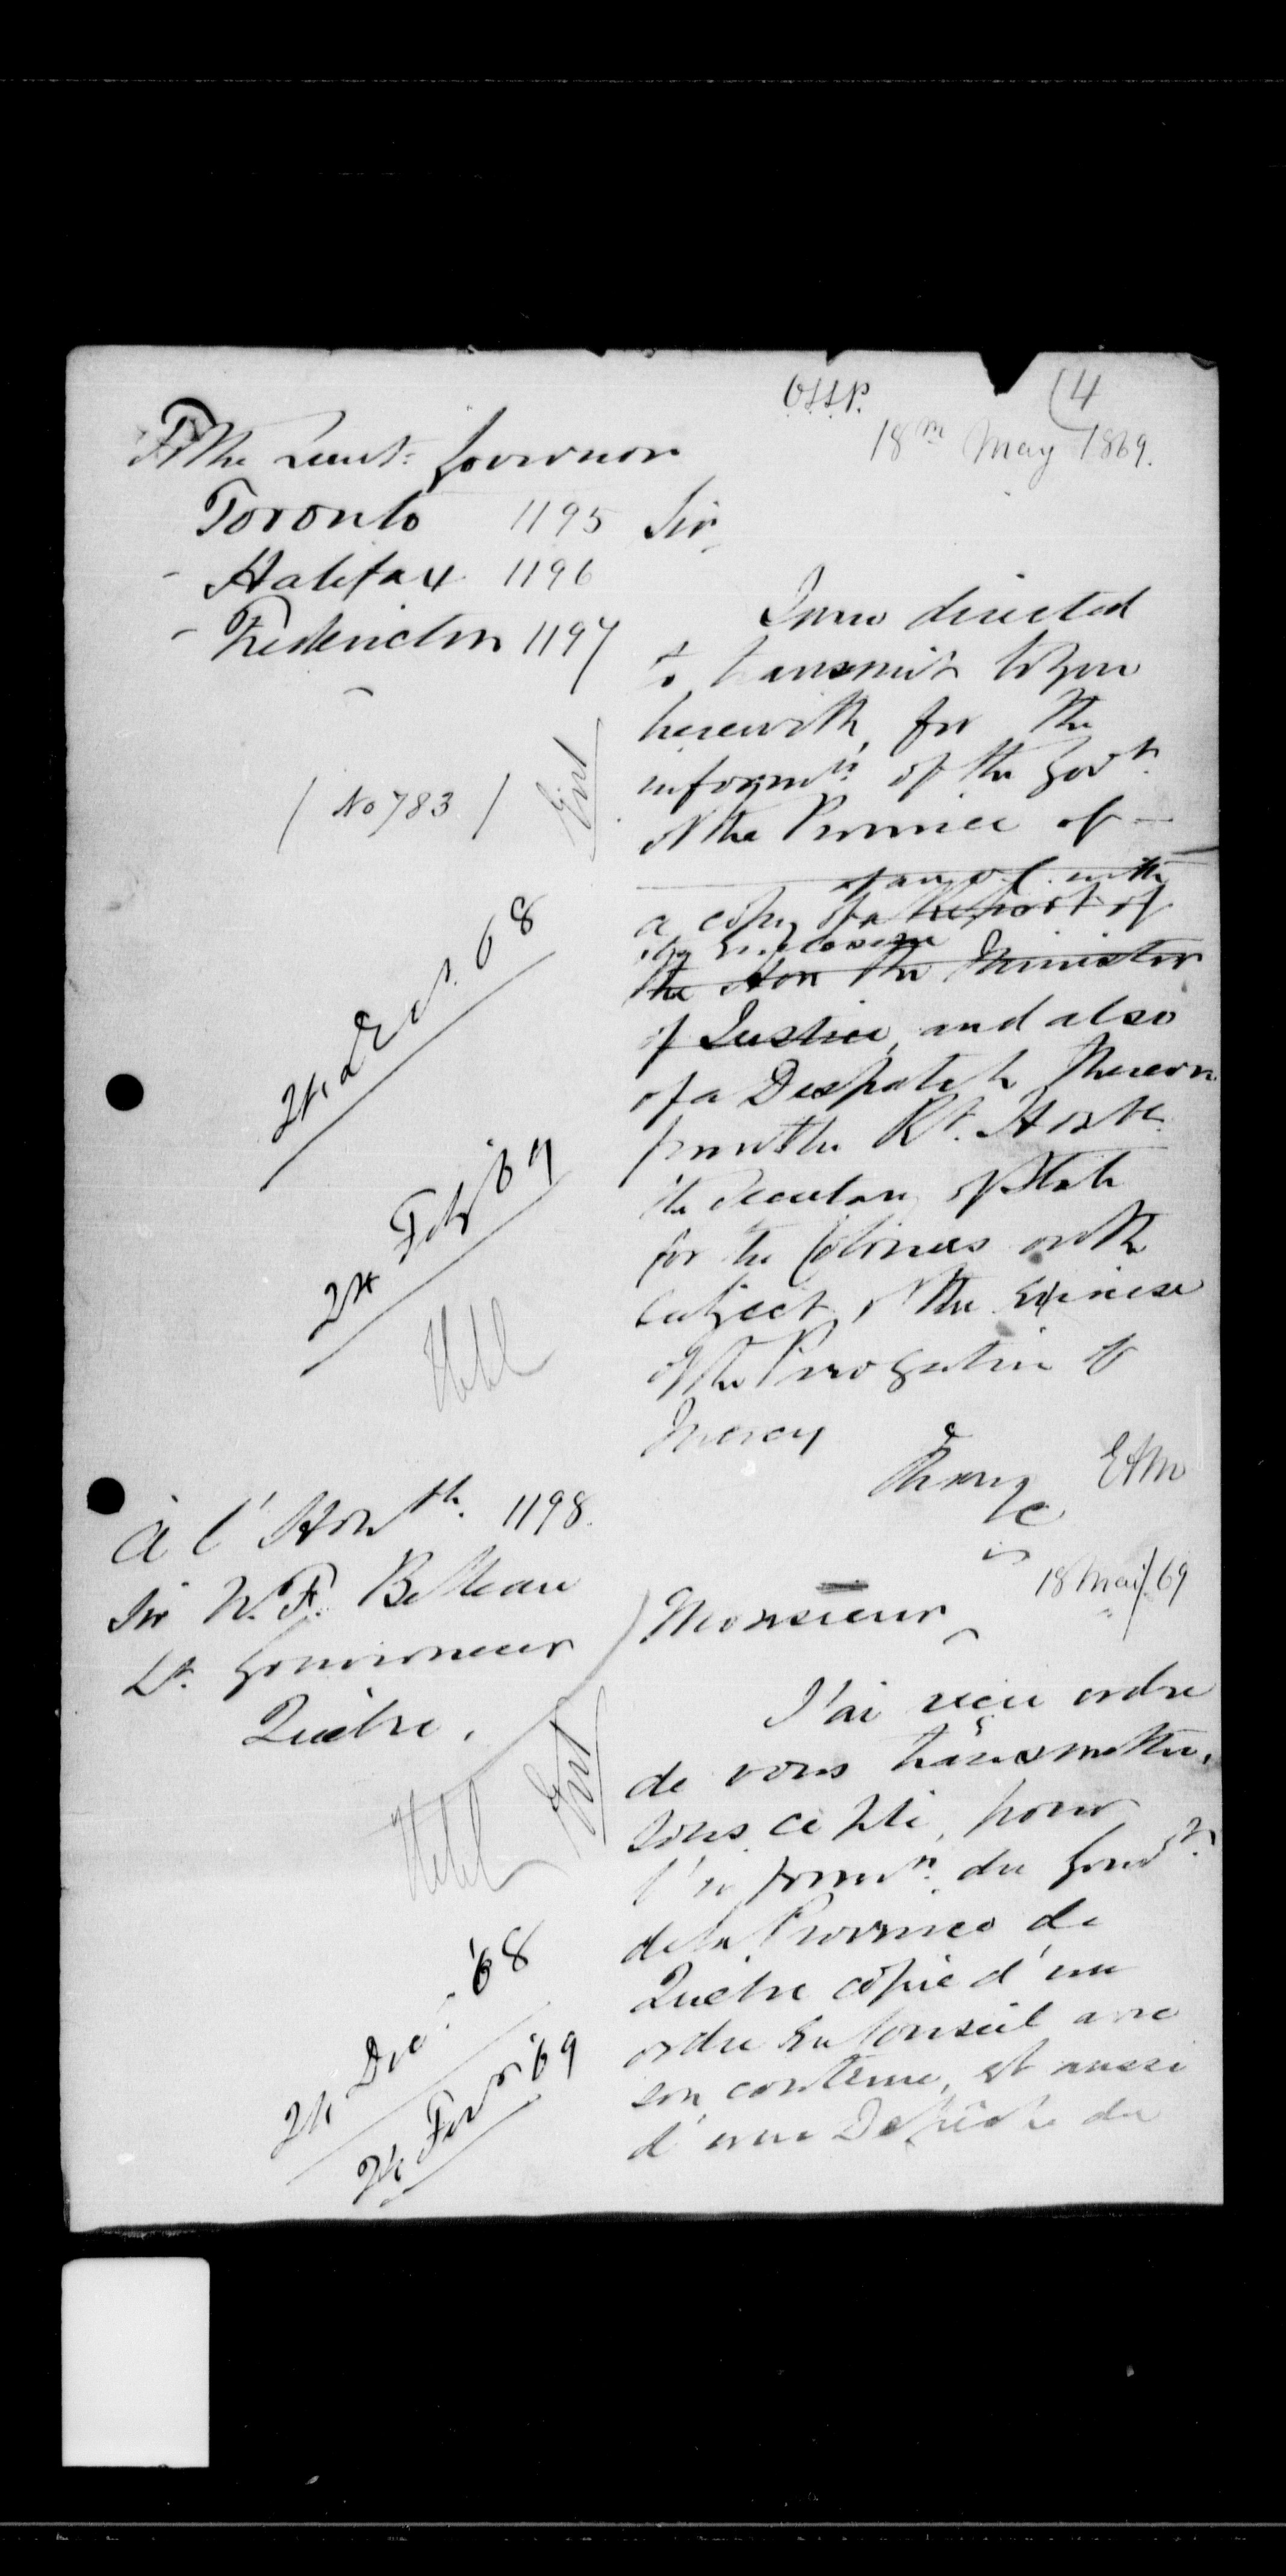 O.S.S.P. (4
18th May 1869.
To the Lieut: Governor
Toronto 1195
- Halifax 1196
- Fredericton 1197
( No 783 )
Ent
24 Dec. 68
24 Feby '69
Sir,
I am directed
to transmit to you
herewith, for the
informn. of the Govt.
of the Province of -
of an O. C. with
a copy of a Report of
its enclosure
the Hon the Minister
of Justice, and also
of a Despatch thereon
from the Rt. Honble.
the Secretary of State
for the Colonies on the
subject of the exercise
of the Prerogative of
Mercy
I have
&c
EAM
à l'Honble. 1198.
Sir N. F. Belleau
Lt. Gouverneur
Québec.
Ent
24 Dec. '68
24 Fevr '69
18 Mai/69
Monsieur,
J'ai reçu ordre
de vous transmettre,
sous ce pli, pour
l'informn. du Gouvt.
de la Province de
Québec copie d'un
ordre en Conseil avec
son contenu, et aussi
d'une Dépêche du